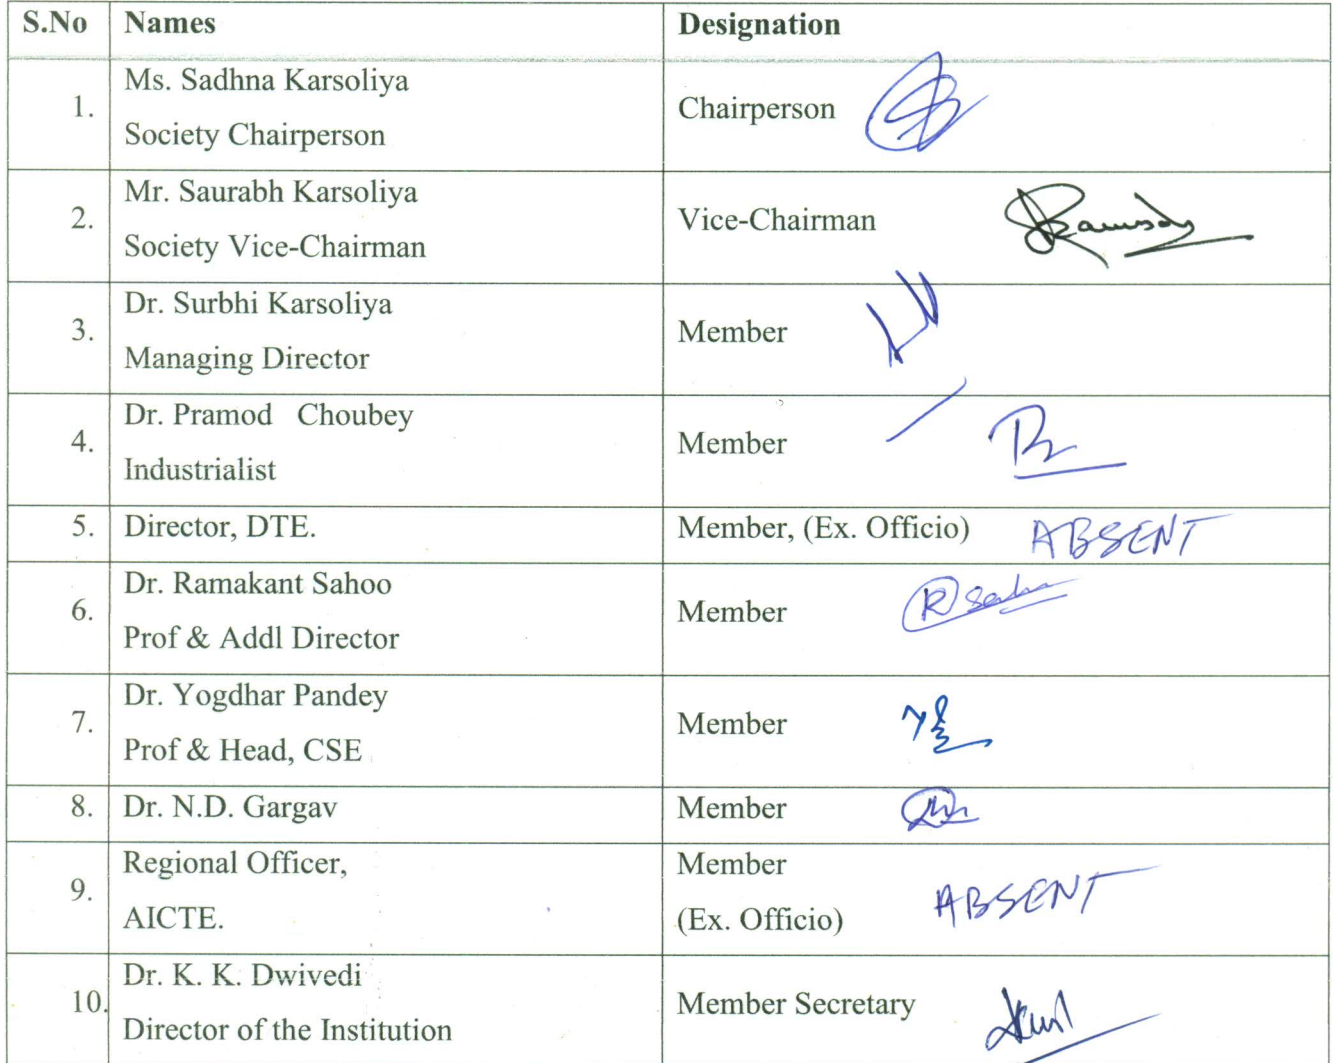 S.No Names Designation
1. Ms. Sadhna Karsoliya
Society Chairperson
Chairperson
2. Mr. Saurabh Karsoliya
Society Vice-Chairman
Vice-Chairman
3. Dr. Surbhi Karsoliya
Managing Director
Member
4. Dr. Pramod Choubey
Industrialist
Member
5. Director, DTE. Member, (Ex. Officio) ABSENT
6. Dr. Ramakant Sahoo
Prof & Addl Director
Member
7. Dr. Yogdhar Pandey
Prof & Head, CSE
Member
8. Dr. N.D. Gargav Member
9. Regional Officer,
AICTE.
Member
(Ex. Officio)
ABSENT
10. Dr. K. K. Dwivedi
Director of the Institution
Member Secretary